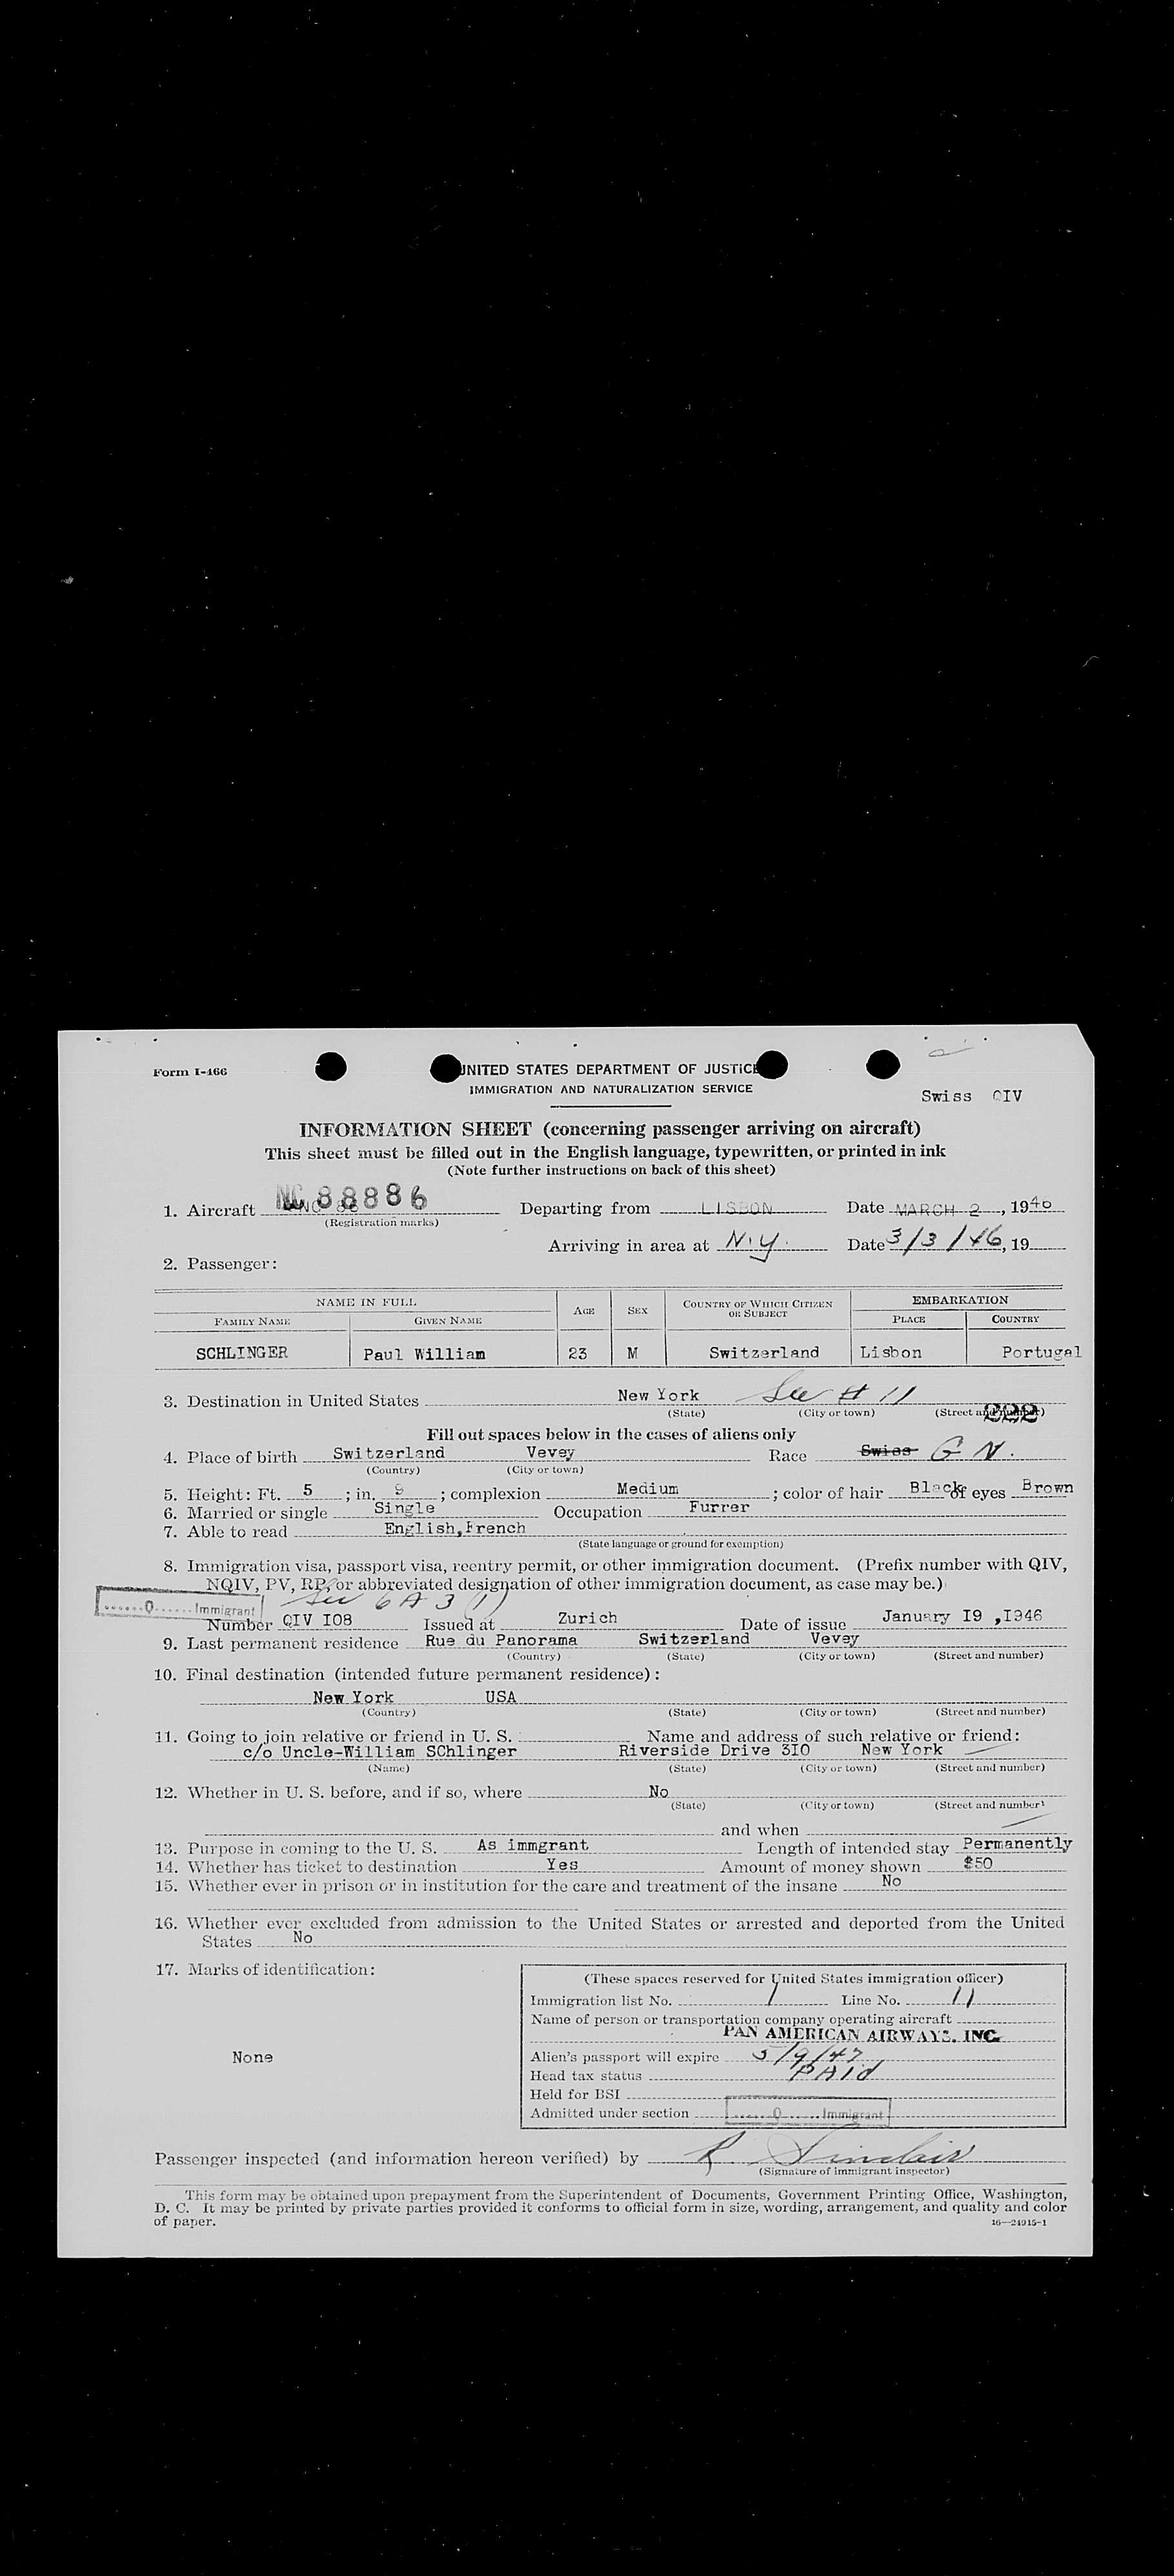 Form I-466
UNITED STATES DEPARTMENT OF JUSTICE
IMMIGRATION AND NATURALIZATION SERVICE
Swiss QIV
INFORMATION SHEET (concerning passenger arriving on aircraft)
This sheet must be filled out in the English language, typewritten, or printed in ink
(Note further instructions on back of this sheet)
1. Aircraft NC 88886 Departing from LISBON Date MARCH 2, 1946
(Registration marks)
Arriving in area at N.Y. Date 3/3/46, 19
2. Passenger:
NAME IN FULL AGE SEX COUNTRY OF WHICH CITIZEN OR SUBJECT EMBARKATION
FAMILY NAME GIVEN NAME PLACE COUNTRY
SCHLINGER Paul William 23 M Switzerland Lisbon Portugal
3. Destination in United States New York See # 11
(State) (City or town) (Street and number) 222
Fill out spaces below in the cases of aliens only
4. Place of birth Switzerland Vevey Race Swiss G N.
(Country) (City or town)
5. Height: Ft. 5 ; in. ; complexion Medium ; color of hair Black of eyes Brown
6. Married or single Single Occupation Furrer
7. Able to read English,French
(State language or ground for exemption)
8. Immigration visa, passport visa, reentry permit, or other immigration document. (Prefix number with QIV,
NQIV, PV, RP, or abbreviated designation of other immigration document, as case may be.)
See 6 A 3 (1)
......Q...... Immigrant
Number QIV I08 Issued at Zurich Date of issue January I9 ,I946
9. Last permanent residence Rue du Panorama Switzerland Vevey
(Country) (State) (City or town) (Street and number)
10. Final destination (intended future permanent residence):
New York USA
(Country) (State) (City or town) (Street and number)
11. Going to join relative or friend in U. S. Name and address of such relative or friend:
c/o Uncle-William SChlinger Riverside Drive 3I0 New York
(Name) (State) (City or town) (Street and number)
12. Whether in U. S. before, and if so, where No
(State) (City or town) (Street and number)
and when
13. Purpose in coming to the U. S. As immgrant Length of intended stay Permanently
14. Whether has ticket to destination Yes Amount of money shown $50
15. Whether ever in prison or in institution for the care and treatment of the insane No
16. Whether ever excluded from admission to the United States or arrested and deported from the United
States No
17. Marks of identification:
None
(These spaces reserved for United States immigration officer)
Immigration list No. 1 Line No. 11
Name of person or transportation company operating aircraft
PAN AMERICAN AIRWAYS, INC.
Alien's passport will expire 5/9/47
Head tax status PAId
Held for BSI
Admitted under section ......Q...... Immigrant
Passenger inspected (and information hereon verified) by R Sinclair
(Signature of immigrant inspector)
This form may be obtained upon prepayment from the Superintendent of Documents, Government Printing Office, Washington,
D. C. It may be printed by private parties provided it conforms to official form in size, wording, arrangement, and quality and color
of paper.
16—24915-1